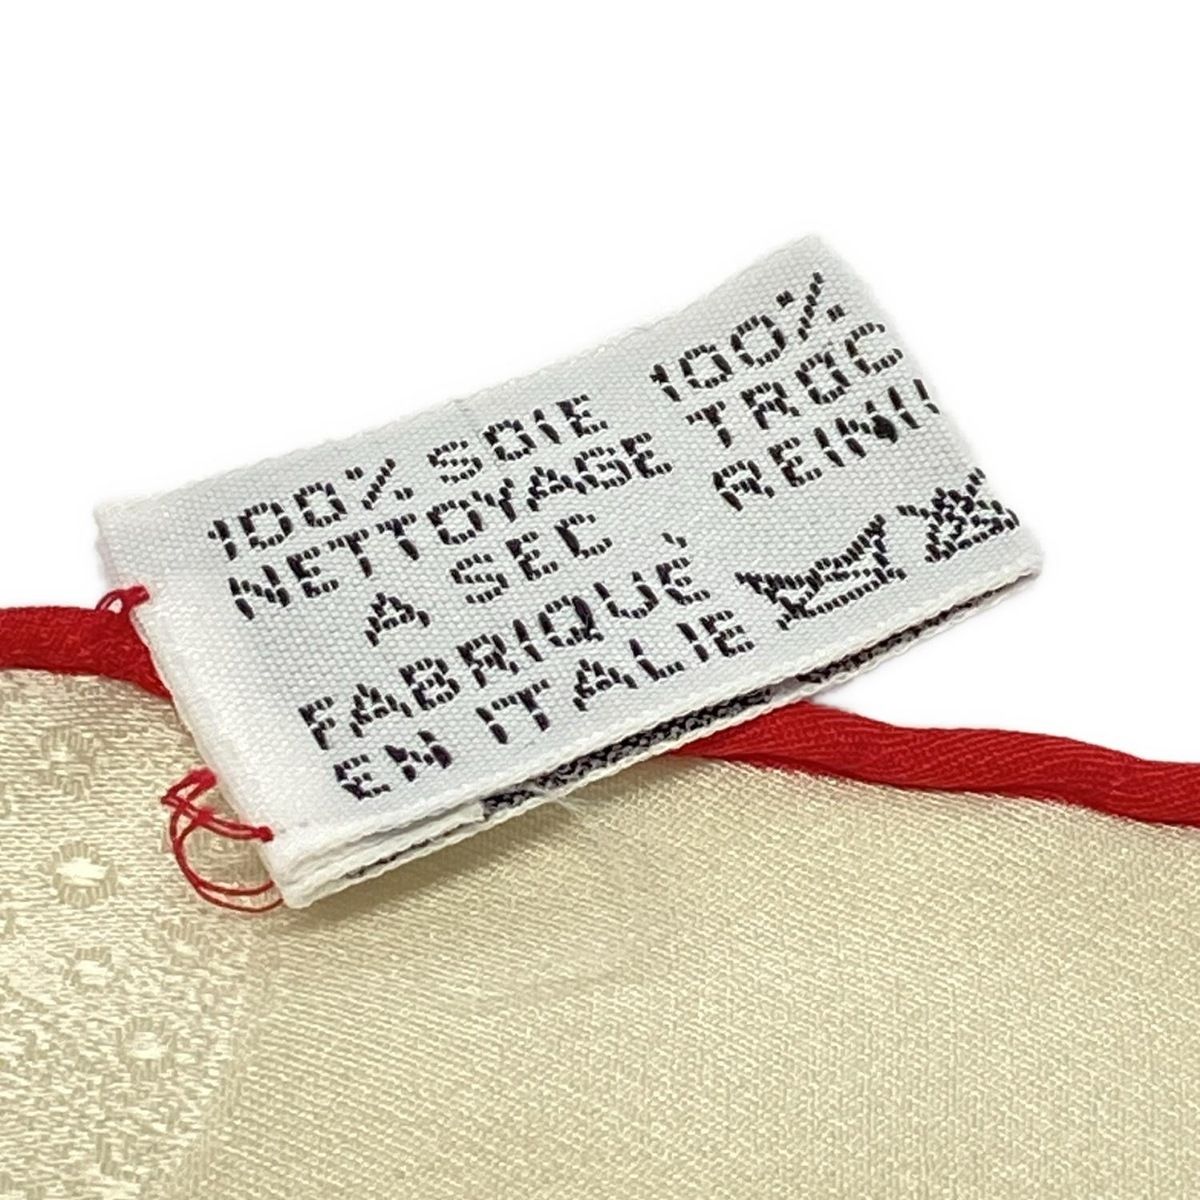 100% SOIE
NETTOYAGE
A SEC
FABRIQUÉ
EN ITALIE
100%